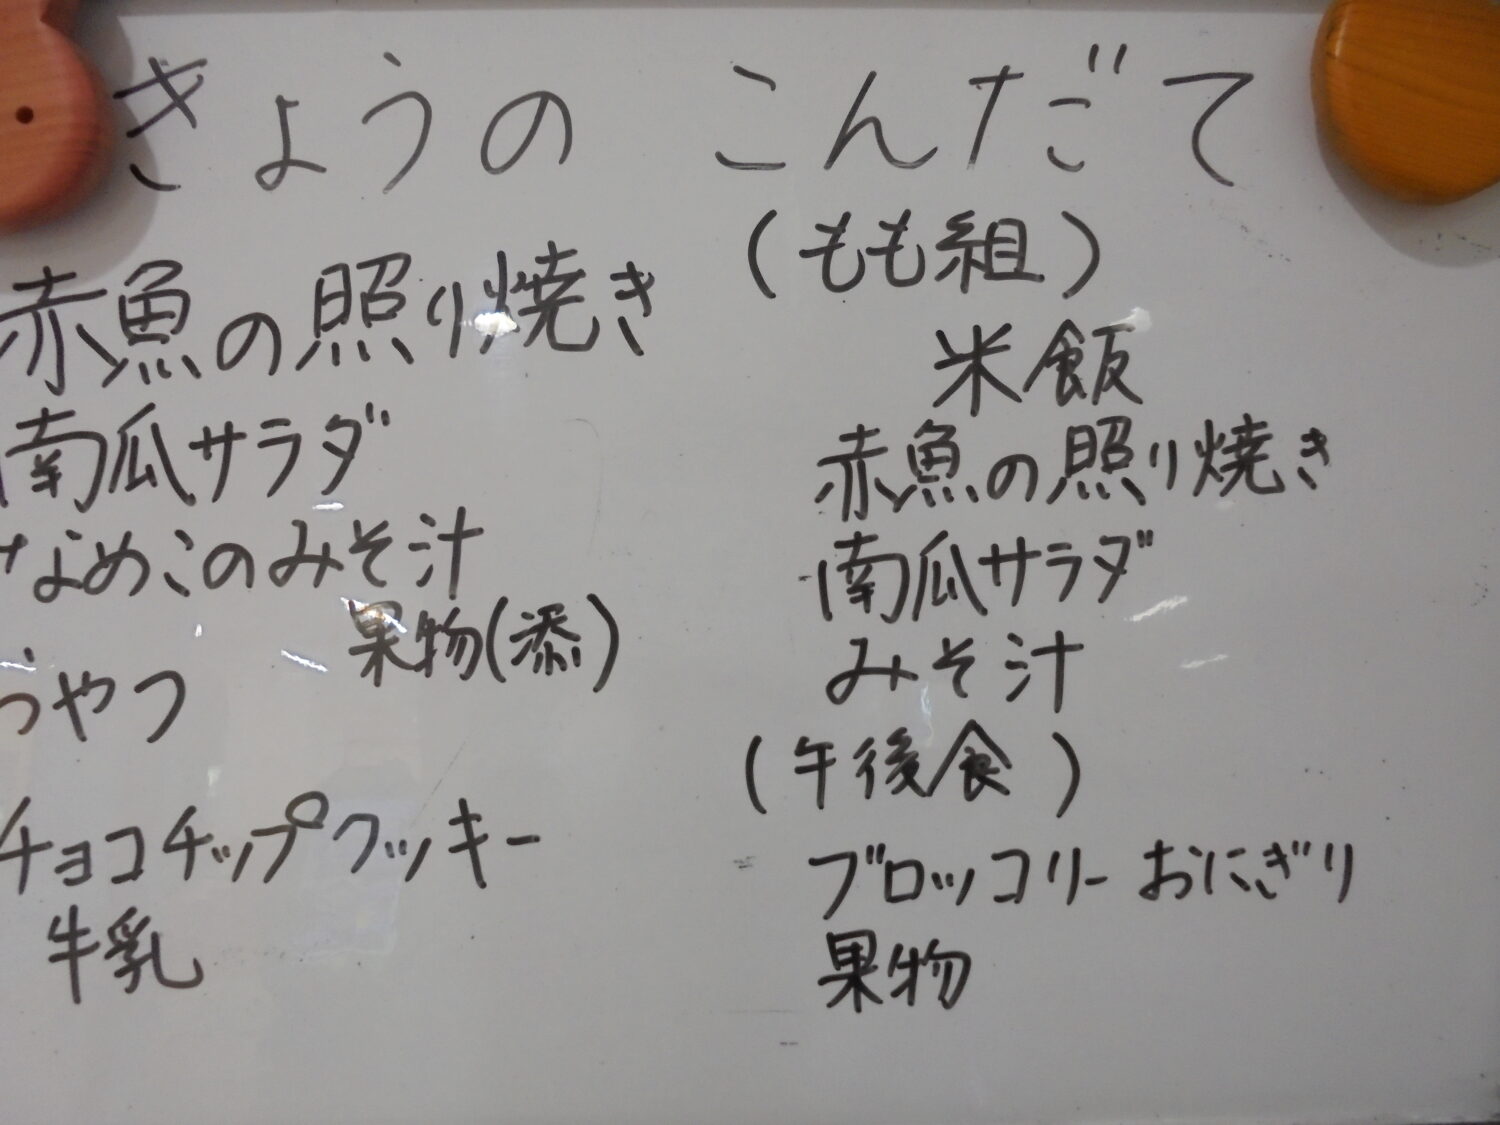 きょうの こんだて
赤魚の照り焼き
南瓜サラダ
なめこのみそ汁
果物(添)
おやつ
チョコチップクッキー
牛乳
(もも組)
米飯
赤魚の照り焼き
南瓜サラダ
みそ汁
(午後食)
ブロッコリーおにぎり
果物